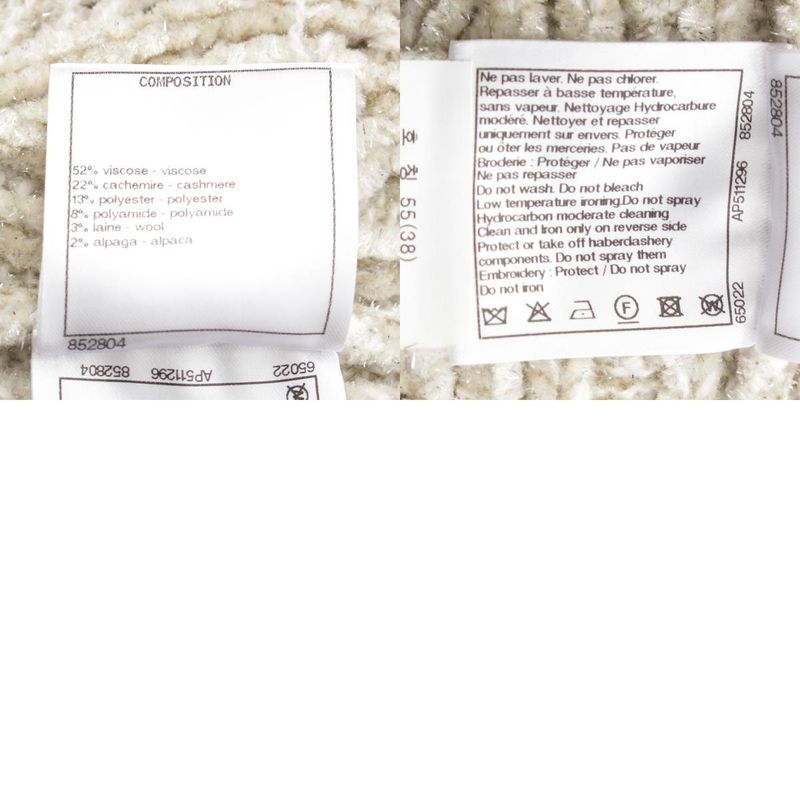 COMPOSITION
52% viscose - viscose
22% cachemire - cashmere
13% polyester - polyester
8% polyamide - polyamide
3% laine - wool
2% alpaga - alpaca
852804
65022
AP511296
852804
호칭 55(38)
Ne pas laver. Ne pas chlorer.
Repasser à basse température,
sans vapeur. Nettoyage Hydrocarbure
modéré. Nettoyer et repasser
uniquement sur envers. Protéger
ou ôter les merceries. Pas de vapeur
Broderie : Protéger / Ne pas vaporiser
Ne pas repasser
Do not wash. Do not bleach
Low temperature ironing.Do not spray
Hydrocarbon moderate cleaning
Clean and Iron only on reverse side
Protect or take off haberdashery
components. Do not spray them
Embroidery : Protect / Do not spray
Do not iron
F
W
65022
AP511296
852804
852804